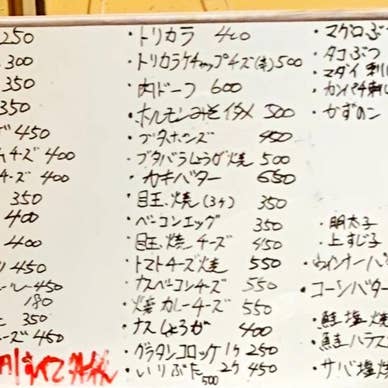 250
300
350
350
450
チーズ 400
チーズ 400
350
400
400
450
450
180
350
ーズ 450
・トリカラ 400
・トリカラケチャップチーズ(辛) 500
・肉ドーフ 600
・ホルモンみそイタメ 500
・ブタポンズ 450
・ブタバラしょうが焼 500
・カキバター 650
・目玉焼(3ヶ) 350
・ベーコンエッグ 350
・目玉焼チーズ 450
・トマトチーズ焼 550
・ナスベーコンチーズ 550
・焼カレーチーズ 550
・ナスしょうが 400
・グラタンコロッケ1ヶ 250
・いりぶた 2ヶ 450
500
・マグロぶつ
・タコぶつ
・マダイ刺し
・カンパチ刺し
・かずのこ
・明太子
・上すじ子
・ウインナーバ
・コーンバター
・鮭塩焼
・鮭ハラス
・サバ塩焼